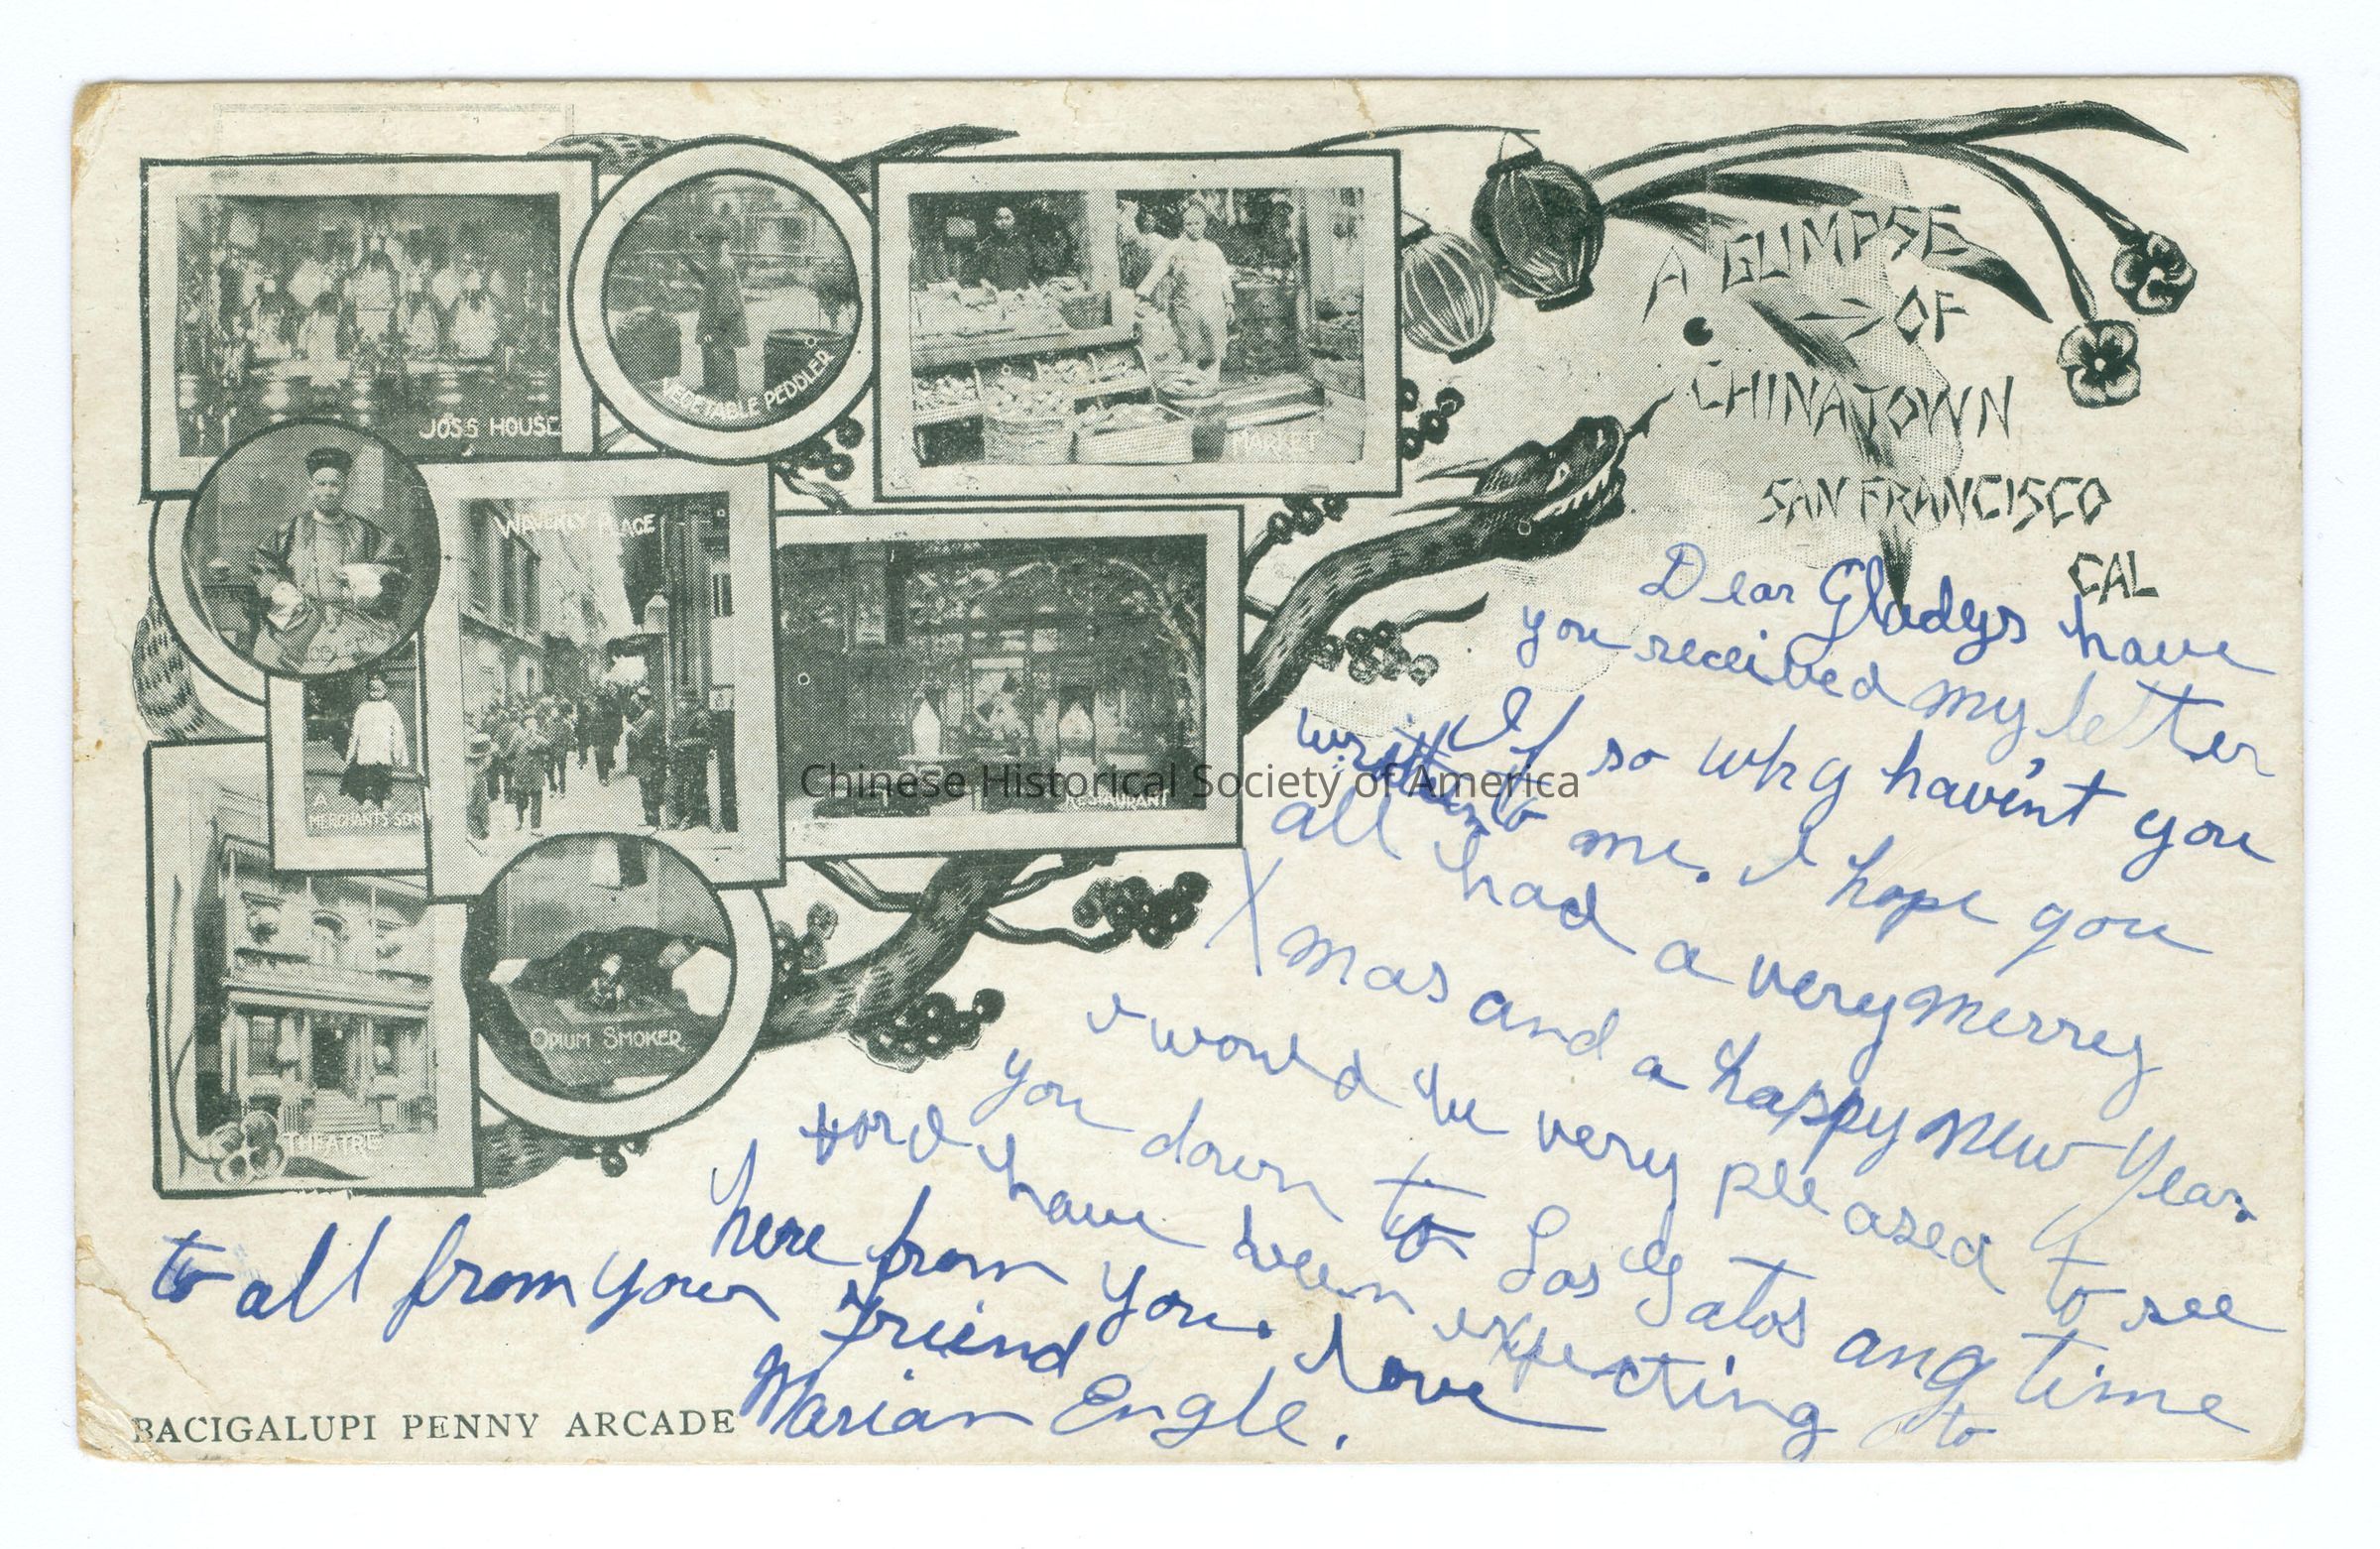 JOSS HOUSE
VEGETABLE PEDDLER
MARKET
A GLIMPSE
OF
CHINATOWN
SAN FRANCISCO
CAL
WAVERLY PLACE
A
MERCHANTS SON
RESTAURANT
THEATRE
OPIUM SMOKER
Dear Gladys have
you received my letter
If so why havin't you
written to me. I hope you
all had a very merrey
Xmas and a happy New Year.
I would be very pleased to see
you down to Los Gatos any time
I have been expecting to
here from you. Love
to all from your Friend
Marian Engle.
BACIGALUPI PENNY ARCADE
Chinese Historical Society of America